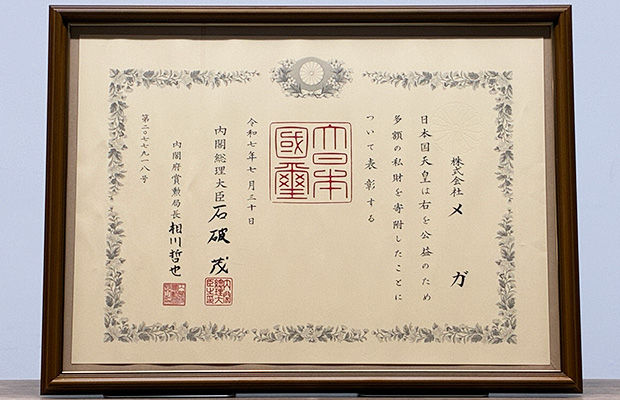 株式会社 メガ
日本国天皇は右を公益のため
多額の私財を寄附したことに
ついて表彰する
大日本國璽
令和七年七月三十日
内閣総理大臣 石破茂
内閣総理大臣之印
内閣府賞勲局長 相川哲也
第二〇七七九一八号